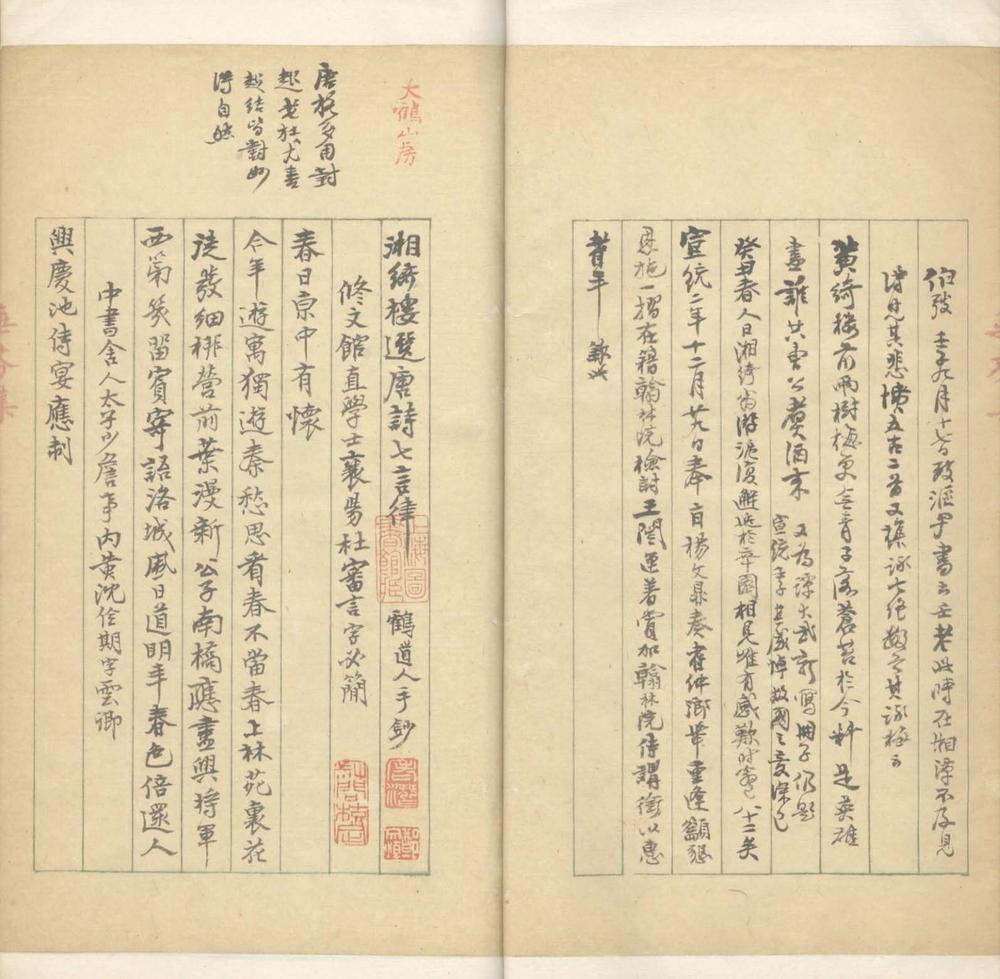 伯弢壬子九月十七日致滙尹書云壬老此時在湘潭不及見
得見其悲憤五古二首又集詠七絕數首其詠梅云
黃綺樓前兩樹梅更無青子落蒼苔於今料是英雄
盡誰共曹公煑酒來
又為譚大武新寫冊子仍題
宣統年子其感悼故國之意深已
癸丑春人日湘綺翁游滬復解逅於辛園相見唯有感歎時翁已八十二矣
宣統二年十二月廿九日奉旨楊文鼎奏耆仲鄉舉重逢籲懇
恩施一摺在籍翰林院檢討王闓運著賞加翰林院侍講銜以惠
耆年 欽此
大鶴山房
唐祝多用對
起老杜尤善
起結皆對妙
得自然
湘綺樓選唐詩七言律 鶴道人手鈔
修文館直學士襄陽杜審言字必簡
春日京中有懷
今年遊寓獨遊秦愁思看春不當春上林苑裏花
徒發細柳營前葉漫新公子南橋應盡興將軍
西第幾留賓寄語洛城風日道明年春色倍還人
中書舍人太子少詹事內黃沈佺期字雲卿
興慶池侍宴應制